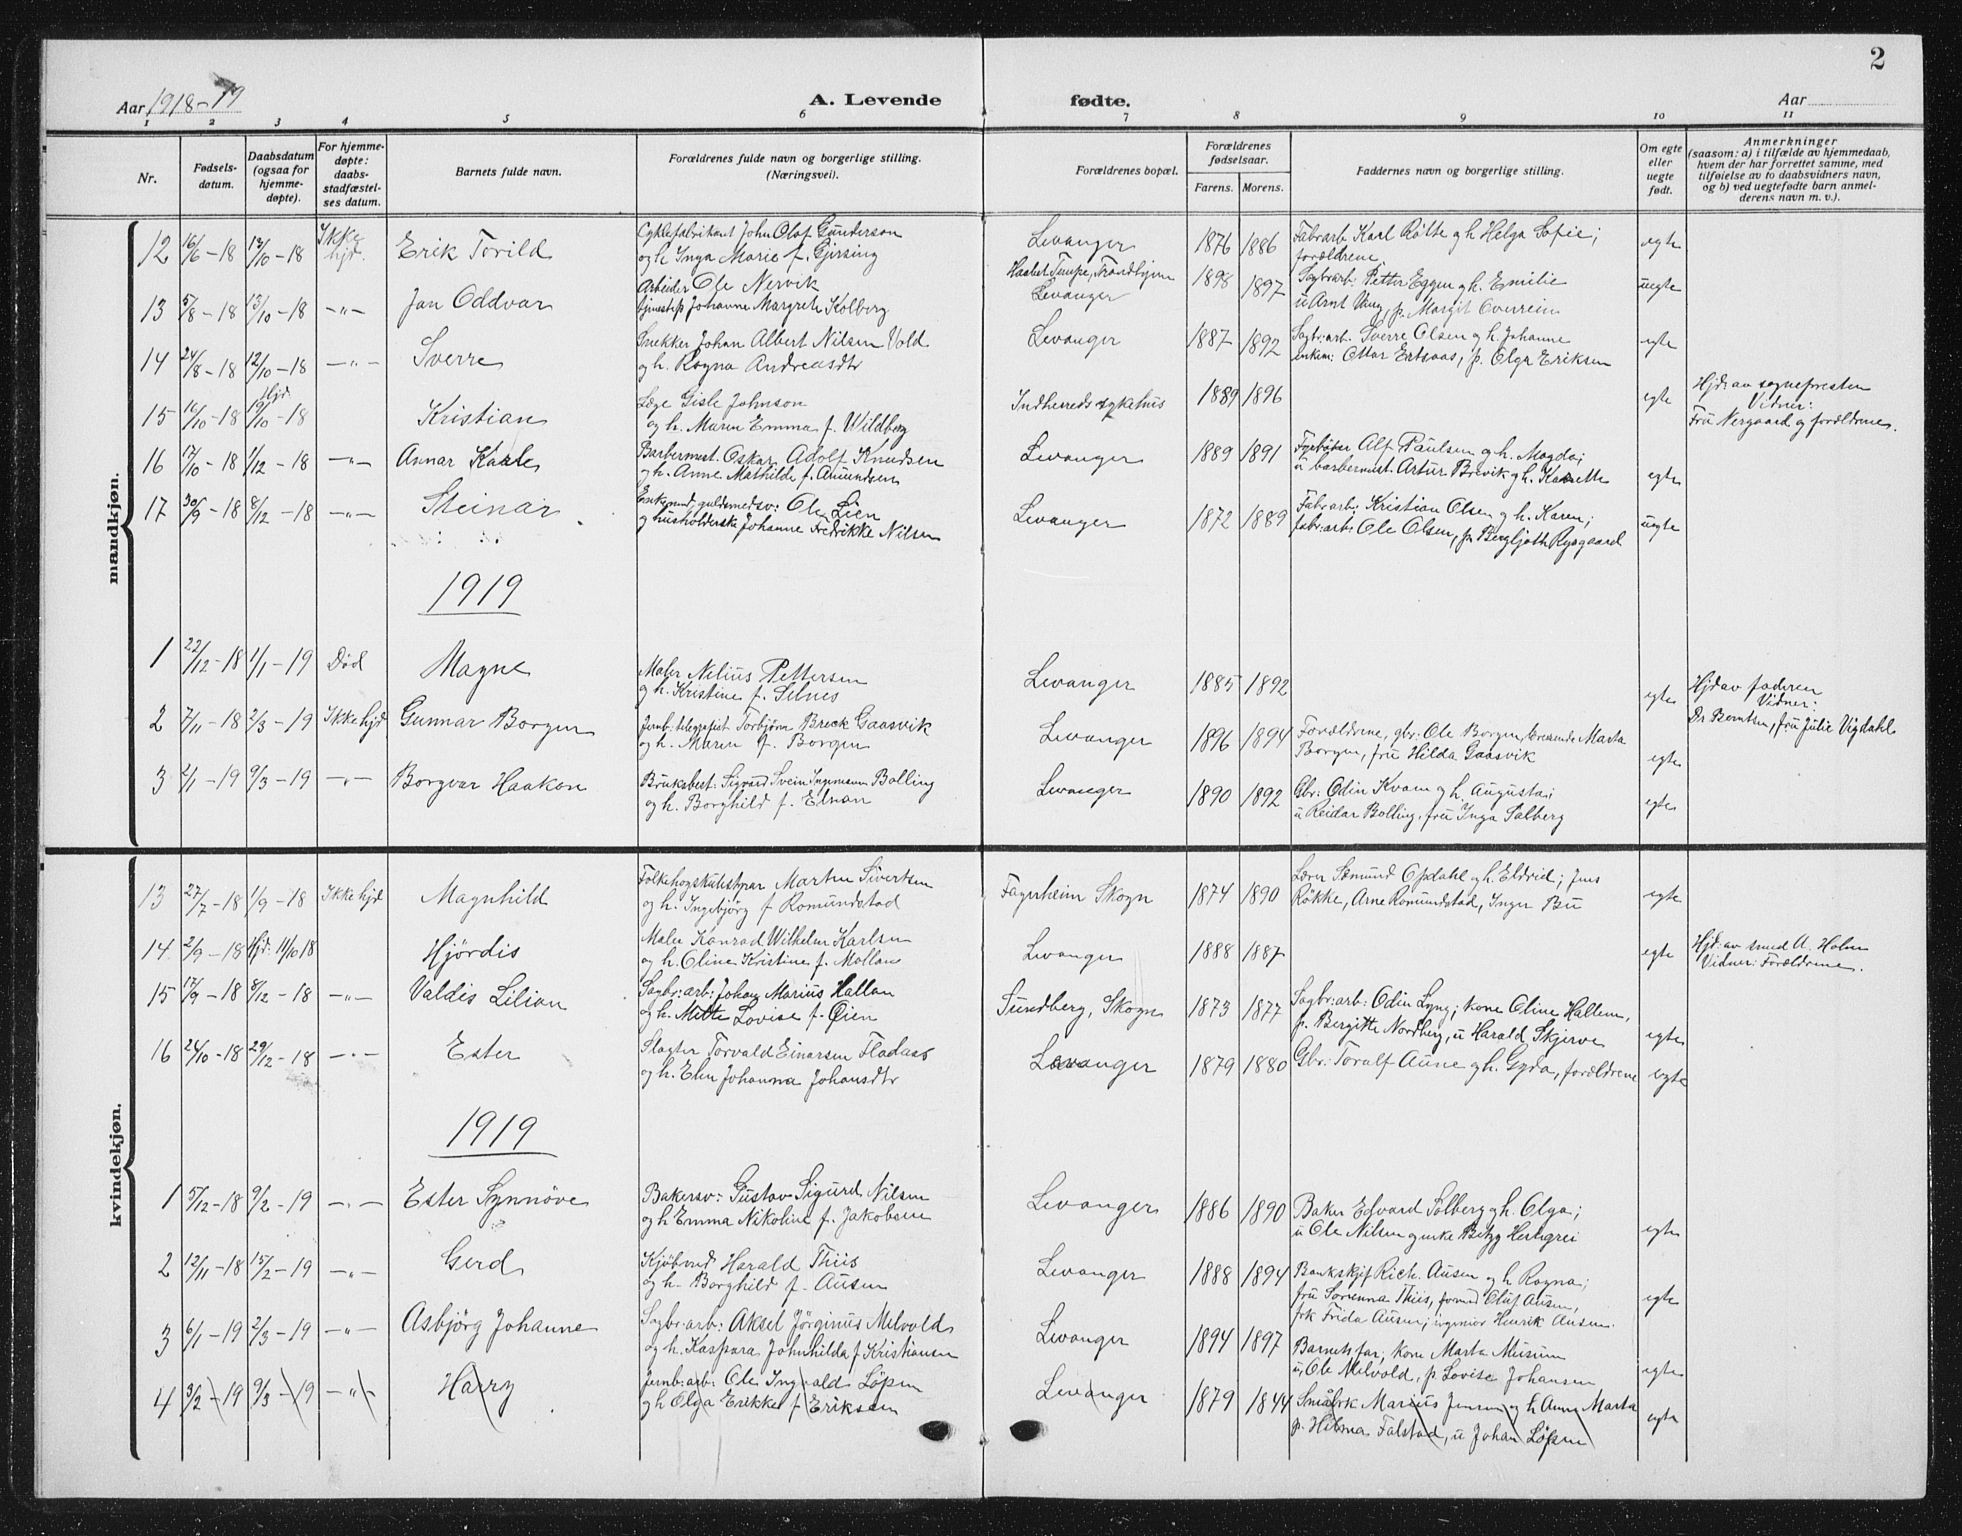 2
Aar 1918-19
A. Levende fødte.
Aar
1 2 3 4 5 6 7 8 9 10 11
Nr.
Fødsels-
datum.
Daabsdatum
(ogsaa for
hjemme-
døpte).
For hjemme-
døpte:
daabs-
stadfæstel-
ses datum.
Barnets fulde navn.
Forældrenes fulde navn og borgerlige stilling.
(Næringsvei).
Forældrenes bopæl.
Forældrenes
fødselsaar.
Farens. Morens.
Faddernes navn og borgerlige stilling.
Om egte
eller
uegte
født.
Anmerkninger
(saasom: a) i tilfælde av hjemmedaab,
hvem der har forrettet samme, med
tilføielse av to daabsvidners navn,
og b) ved uegtefødte barn anmel-
derens navn m. v.).
mandkjøn.
12 16/6-18 13/10-18 Ikke hjd. Erik Torild
Cyklefabrikant John Olaf Gunderson
og h. Inga Marie f. Gjersing
Levanger 1876 1886
Fabr.arb Karl Rølte og h Helga Sofie;
forældrene.
egte
13 5/8-18 13/10-18 -"- Jan Oddvar
Arbeider Ole Nervik
tjenestep Johanne Margrete Kolberg
Tempe, Trondhjem
Levanger 1898 1897
Sagbr.arb: Petter Eggen og h. Emilie
u Arnt Ving, p. Margit Overrein
uegte
14 24/8-18 12/10-18 -"- Sverre
Snekker Johan Albert Nilsen Vold
og h. Ragna Andreasdtr
Levanger 1887 1892
Sagbr.arb. Sverre Olsen og h. Johanne
enkem: Ottar Ertsaas, p. Olga Eriksen
egte
15 16/10-18 Hjd. 19/10-18 Kristian
Læge Gisle Johnson
og h. Maren Emma f. Wildberg
Indherreds sykehus 1889 1896
egte
Hjd: av sognepresten
Vidner:
Fru Nergaard og forældrene.
16 17/10-18 1/12-18 -"- Annar Kaale
Barbermest. Oskar Adolf Knudsen
og h. Anne Mathilde f. Amundsen
Levanger 1889 1891
Fyrbøter Alf Paulsen og h. Magda;
u barbermest Artur Brevik og h. Karette
egte
17 30/9-18 8/12-18 -"- Steinar
Enkemd, guldsmedsv: Ole Lien
og husholderske Johanne Fredrikke Nilsen
Levanger 1872 1889
Fabr.arb: Kristian Olsen og h. Karen;
fabr:arb: Ole Olsen, p. Bergljoth Rysgaard
uegte
1919
1 22/12-18 1/1-19 Død Magne
Maler Nelius Pettersen
og h. Kristine f. Selnes
Levanger 1885 1892
egte
Hjd av faderen
Vidner:
Dr. Berntsen, fru Julie Vigdahl
2 7/11-18 2/3-19 Ikke hjd Gunnar Borgen
Jernb. telegrafist Torbjørn Breck Gaasvik
og h. Maren f. Borgen
Levanger 1896 1894
Forældrene, gbr: Ole Borgen, Marta
Borgen, fru Hilda Gaasvik
egte
3 2/1-19 9/3-19 -"- Borgvar Haakon
Bruksbest: Sigvard Svein Ingemann Bolling
og h. Borghild f. Elnan
Levanger 1890 1892
Gbr: Odin Kvam og h. Augusta;
u Reidar Bolling, fru Inga Salberg
egte
kvindekjøn.
13 27/7-18 1/9-18 Ikke hjd Magnhild
Folkehøgskulestyrar Martin Sivertsen
og h. Ingebjørg f Romundstad
Fagerheim Skogn 1874 1890
Lærer Sæmund Opdahl og h. Eldrid; Jens
Røkke, Arne Romundstad, Inger Bu
egte
14 2/9-18 Hjd. 11/10 18 Hjördis
Maler Konrad Wilhelm Karlsen
og h. Oline Kristine f. Mollan
Levanger 1888 1887
egte
Hjd: av smed A. Holm
Vidner: Forældrene.
15 17/9-18 8/12-18 -"- Valdis Lilian
Sagbr:arb: Johan Marius Hallan
og h. Mette Lovise f. Øien
Sundberg, Skogn 1873 1877
Sagbr:arb: Odin Lyng; kone Oline Hallem,
p. Bergitte Nordberg, u Harald Skjerve
egte
16 24/10-18 29/12-18 -"- Ester
Slagter Torvald Einarsen Fladaas
og h. Elen Johanna Johansdtr
Levanger 1879 1880
Gbr: Toralf Aune og h. Gyda, forældrene
egte
1919
1 5/12-18 9/2-19 -"- Ester Synnöve
Bakersv: Gustav Sigurd Nilsen
og h Emma Nikoline f. Jakobsen
Levanger 1886 1890
Baker Edvard Solberg og h. Olga;
u Ole Nilsen og enke Betzy Hestegrei
egte
2 12/11-18 15/2-19 -"- Gerd
Kjøbmd Harald Thiis
og h. Borghild f. Ausen
Levanger 1888 1894
Bankskjef Rich. Ausen og h Ragna;
fru Sorenna Thiis, Oluf Ausen,
frk Frida Ausen; ingeniør Henrik Ausen.
egte
3 6/1-19 2/3-19 -"- Asbjörg Johanne
Sagbr:arb: Aksel Jørginus Melvold
og h. Kaspara Johnhilda f Kristiansen
Levanger 1894 1897
Barnets far; kone Marta Musum
u, Ole Melvold, p Lovise Johansen
egte
4 3/2-19 9/3-19 -"- Harry
Jernb:arb: Ole Ingvald Løpen
og h Olga Erikke f Eriksen
Levanger 1879 1844
Småbrk Marius Jensen og h Anne Marta
p. Helma Falstad, u Johan Løpen
egte